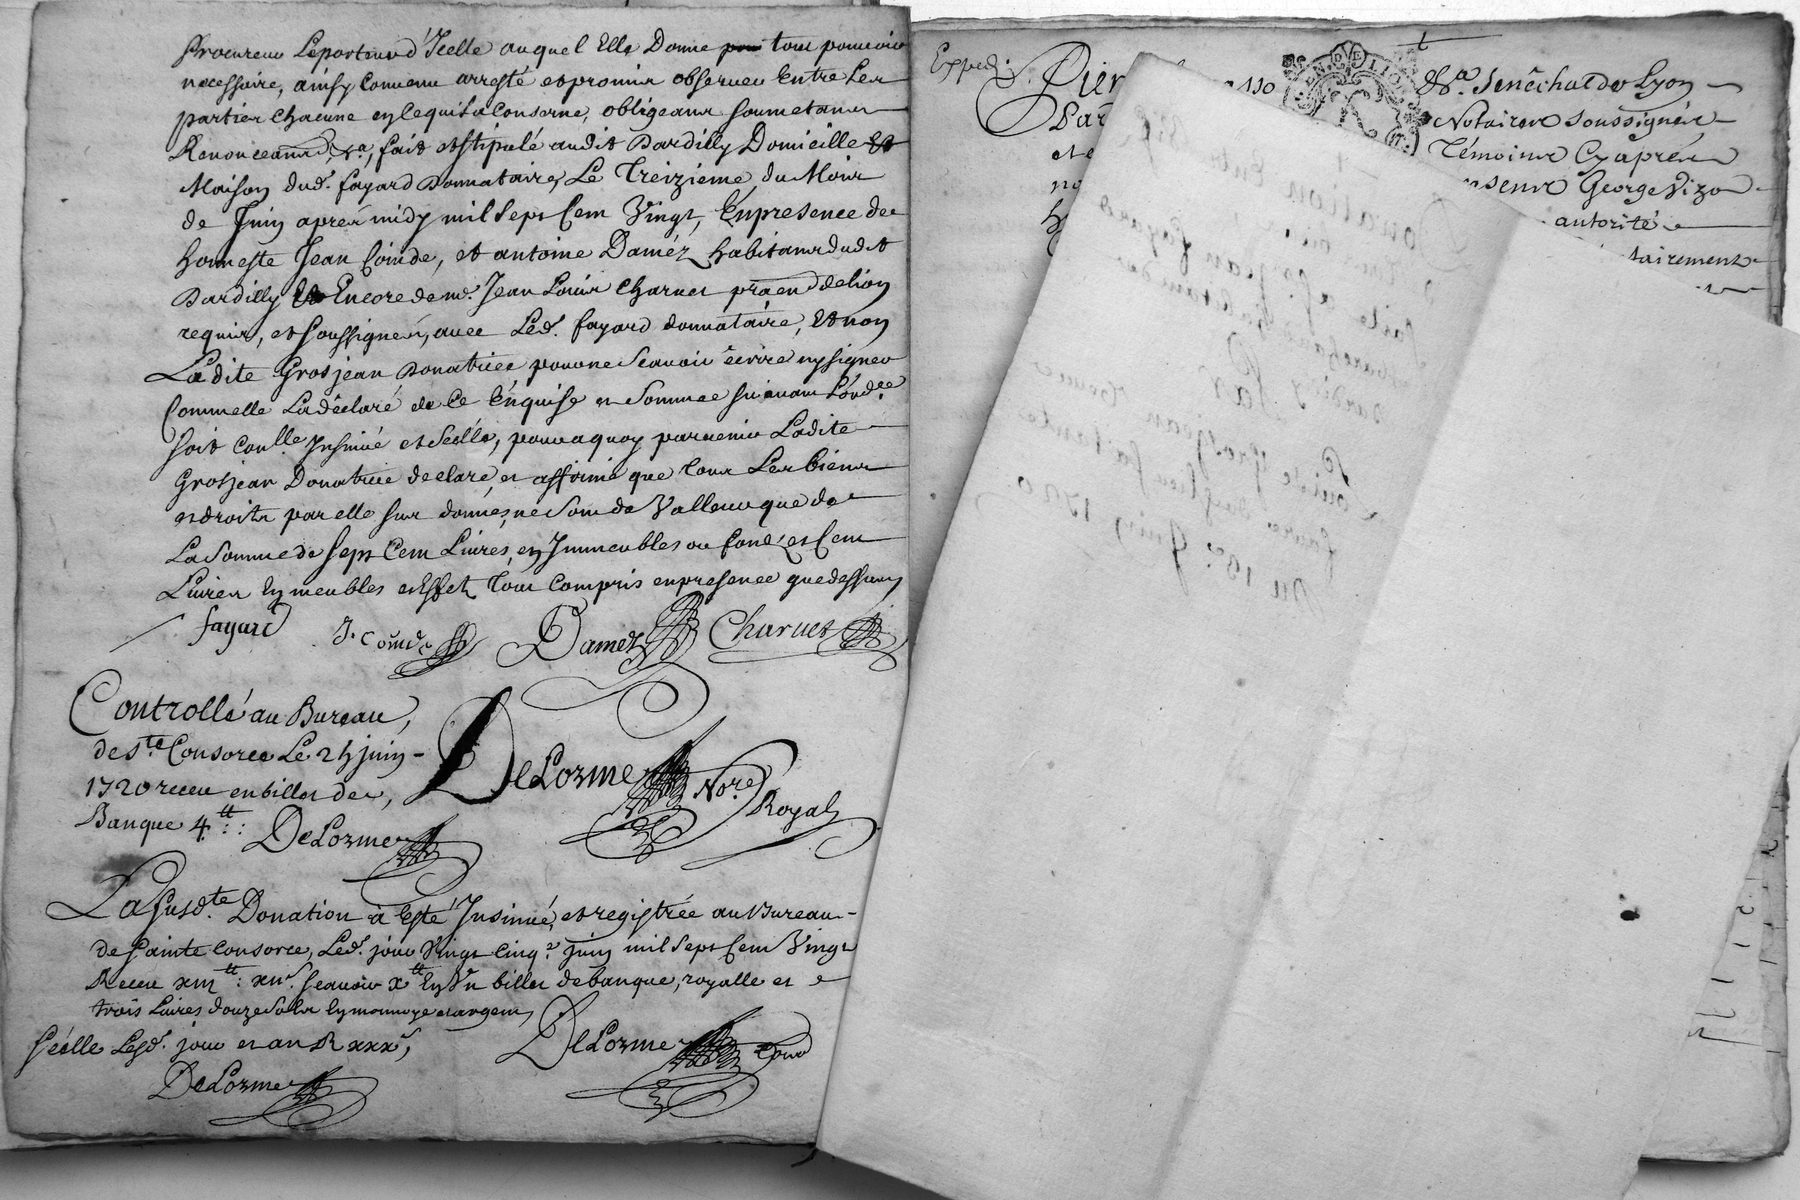 procureur Leporteurd'Icelle auquel Elle Donne tout pouuoir
necessaire, ainsy Conuenu arresté et promis obseruer Entre Les
parties Chacune en Cequi La Conserne, obligeans soumetans
Renonceans, &.a, fait et stipulé audit Dardilly Domicille Et
Maison dud. fayard Donnataire, Le Treizieme du Mois
de Juin apres midy mil sept Cent Vingt, En presence de
honneste Jean Coinde, et antoine Daméz habitans dudit
Dardilly Encore de m.e Jean Louis Charuet pra.en delion
requis, et soussignés, auec Led. fayard donnataire, Et non
Ladite Grosjean Donatrice pour ne scauoir ècrire ny signer
Comm'elle La déclaré de Ce Enquise et Sommée suiuant L'ord.ce
soit Con.lle Insinué et séellé, pour a quoy paruenir Ladite
Grosjean Donatrice declare, et affirme que tous Les biens
et droits par elle sus donnés, ne sont de Valleur que de
La somme de sept Cent Liures, en Immeubles ou fond, et Cent
Liures En meubles et Effet, tout Compris en presence que dessus
fayard J. Coinde Daméz Charuet
Controllé au Bureau,
de S.te Consorce Le 24 juin
1720 receu en billet de,
Banque 4.tt
DeLorme
DeLorme No.re Royal
La susd.te Donation à Esté Insinué, et registrée au Bureau
de sainte Consorce, Led. jour Vingt Cinq.e juin mil sept Cent Vingt
Receu xiii.tt xii.s scauoir x.tt En Vn billet de banque, royalle et
trois Liures douze sols En monnoye et argent,
séelle Lesd. jour et an R xxx.s,
DeLorme
DeLorme
Exped.
Pier
Par
et
no
& Sénéchal de Lyon
Notaires soussignés
Témoins Cyaprés
George Vizo
autorité
tairement
Donation
faite
a s. jean fayard
Par
Grosjean
Du 13.e Juin 1720